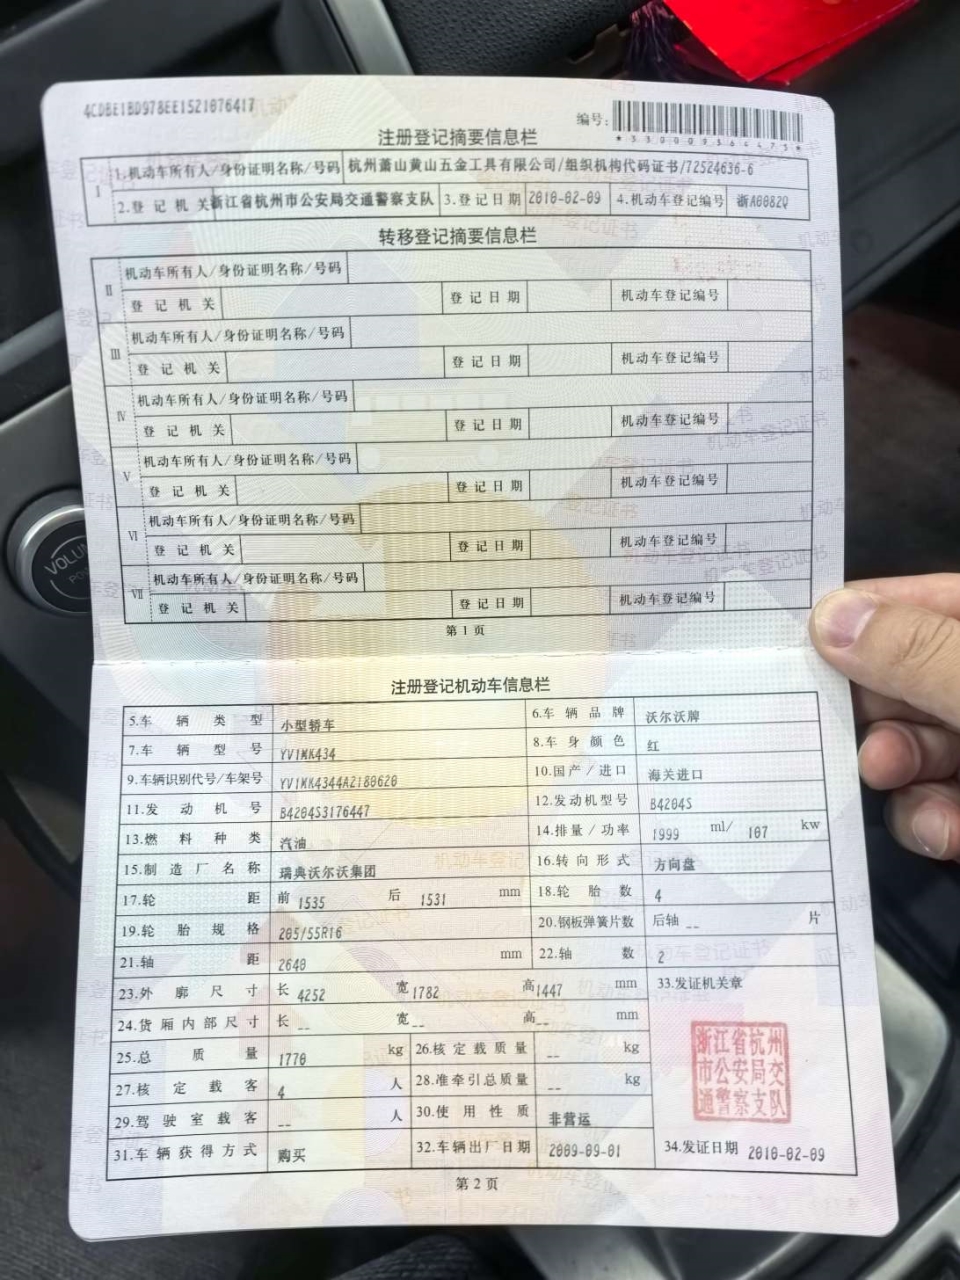 4CDBE1BD978EE1521076417
编号:
*330009564475*
注册登记摘要信息栏
I 1.机动车所有人/身份证明名称/号码 杭州萧山黄山五金工具有限公司/组织机构代码证书/72524636-6
2.登记机关 浙江省杭州市公安局交通警察支队 3.登记日期 2010-02-09 4.机动车登记编号 浙A0082Q
转移登记摘要信息栏
II 机动车所有人/身份证明名称/号码
登记机关 登记日期 机动车登记编号
III 机动车所有人/身份证明名称/号码
登记机关 登记日期 机动车登记编号
IV 机动车所有人/身份证明名称/号码
登记机关 登记日期 机动车登记编号
V 机动车所有人/身份证明名称/号码
登记机关 登记日期 机动车登记编号
VI 机动车所有人/身份证明名称/号码
登记机关 登记日期 机动车登记编号
VII 机动车所有人/身份证明名称/号码
登记机关 登记日期 机动车登记编号
第1页
注册登记机动车信息栏
5.车辆类型 小型轿车 6.车辆品牌 沃尔沃牌
7.车辆型号 YV1MK434 8.车身颜色 红
9.车辆识别代号/车架号 YV1MK4344A2180620 10.国产/进口 海关进口
11.发动机号 B4204S3176447 12.发动机型号 B4204S
13.燃料种类 汽油 14.排量/功率 1999 ml/ 107 kw
15.制造厂名称 瑞典沃尔沃集团 16.转向形式 方向盘
17.轮距 前 1535 后 1531 mm 18.轮胎数 4
19.轮胎规格 205/55R16 20.钢板弹簧片数 后轴 -- 片
21.轴距 2640 mm 22.轴数 2
23.外廓尺寸 长 4252 宽 1782 高 1447 mm 33.发证机关章
24.货厢内部尺寸 长 -- 宽 -- 高 -- mm
25.总质量 1770 kg 26.核定载质量 -- kg
27.核定载客 4 人 28.准牵引总质量 -- kg
29.驾驶室载客 -- 人 30.使用性质 非营运
浙江省杭州
市公安局交
通警察支队
31.车辆获得方式 购买 32.车辆出厂日期 2009-09-01 34.发证日期 2010-02-09
第2页